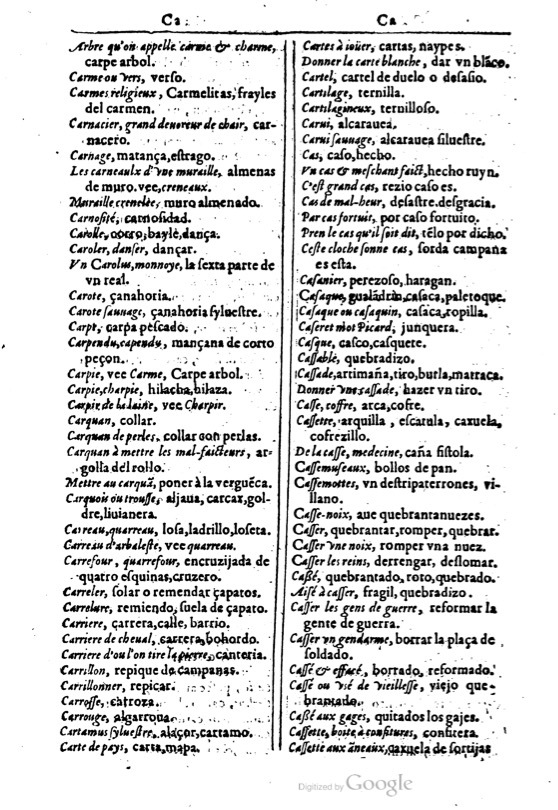 Ca
Arbre qu'on appelle carme & charme,
carpe arbol.
Carme ou vers, verso.
Carmes religieux, Carmelitas, frayles
del carmen.
Carnacier, grand devoreur de chair, car-
nacero.
Carnage, matança, estrago.
Les carneaulx d'vne muraille, almenas
de muro. vee, creneaux.
Muraille crenelée, muro almenado.
Carnosité, carnosidad.
Carolle, corro, bayle, dança.
Caroler, danser, dançar.
Vn Carolus, monnoye, la sexta parte de
vn real.
Carote, çanahoria.
Carote sauuage, çanahoria syluestre.
Carpe, carpa pescado.
Carpendu, capendu, mançana de corto
peçon.
Carpie, vee Carme, Carpe arbol.
Carpie, charpie, hilacha, hilaza.
Carpie de la laine, vee Charpir.
Carquan, collar.
Carquan de perles, collar con perlas.
Carquan à mettre les mal-faicteurs, ar-
golla del rollo.
Mettre au carquã, poner à la verguẽca.
Carquois ou trousse, aljaua, carcax, gol-
dre, liuianera.
Carreau, quarreau, losa, ladrillo, loseta.
Carreau d'arbaleste, vee quarreau.
Carrefour, quarrefour, encruzijada de
quatro esquinas, cruzero.
Carreler, solar o remendar çapatos.
Carrelure, remiendo, suela de çapato.
Carriere, carrera, calle, barrio.
Carriere de cheual, carrera, bohordo.
Carriere d'ou l'on tire la pierre, canteria.
Carrillon, repique de campanas.
Carrillonner, repicar.
Carrosse, carroza.
Carrouge, algarroua.
Cartamus syluestre, alaçor, cartamo.
Carte de pays, carta, mapa.
Ca
Cartes à ioüer, cartas, naypes.
Donner la carte blanche, dar vn blãco.
Cartel, cartel de duelo o desafio.
Cartilage, ternilla.
Cartilagineux, ternilloso.
Carui, alcarauea.
Carui sauuage, alcarauea siluestre.
Cas, caso, hecho.
Vn cas & meschant faict, hecho ruyn.
C'est grand cas, rezio caso es.
Cas de mal-heur, desastre, desgracia.
Par cas fortuit, por caso fortuito.
Pren le cas qu'il soit dit, tẽlo por dicho.
Ceste cloche sonne cas, sorda campana
es esta.
Casanier, perezoso, haragan.
Casaque, gualdrin, casaca, paletoque.
Casaque ou casaquin, casaca, ropilla.
Caseret mot Picard, junquera.
Casque, casco, casquete.
Cassable, quebradizo.
Cassade, artimaña, tiro, burla, matraca.
Donner vne cassade, hazer vn tiro.
Casse, coffre, arca, cofre.
Cassette, arquilla, escatula, caxuela,
cofrezillo.
De la casse, medecine, caña fistola.
Cassemuseaux, bollos de pan.
Cassemottes, vn destripaterrones, vi-
llano.
Casse-noix, aue quebrantanuezes.
Casser, quebrantar, romper, quebrar.
Casser vne noix, romper vna nuez.
Casser les reins, derrengar, deslomar.
Cassé, quebrantado, roto, quebrado.
Aisé à casser, fragil, quebradizo.
Casser les gens de guerre, reformar la
gente de guerra.
Casser vn gendarme, borrar la plaça de
soldado.
Cassé & effacé, borrado, reformado.
Cassé ou vsé de vieillesse, viejo que-
brantado.
Cassé aux gages, quitados los gajes.
Cassette, boite à confitures, confitera.
Cassette aux ãneaux, caxuela de sortijas
Digitized by Google